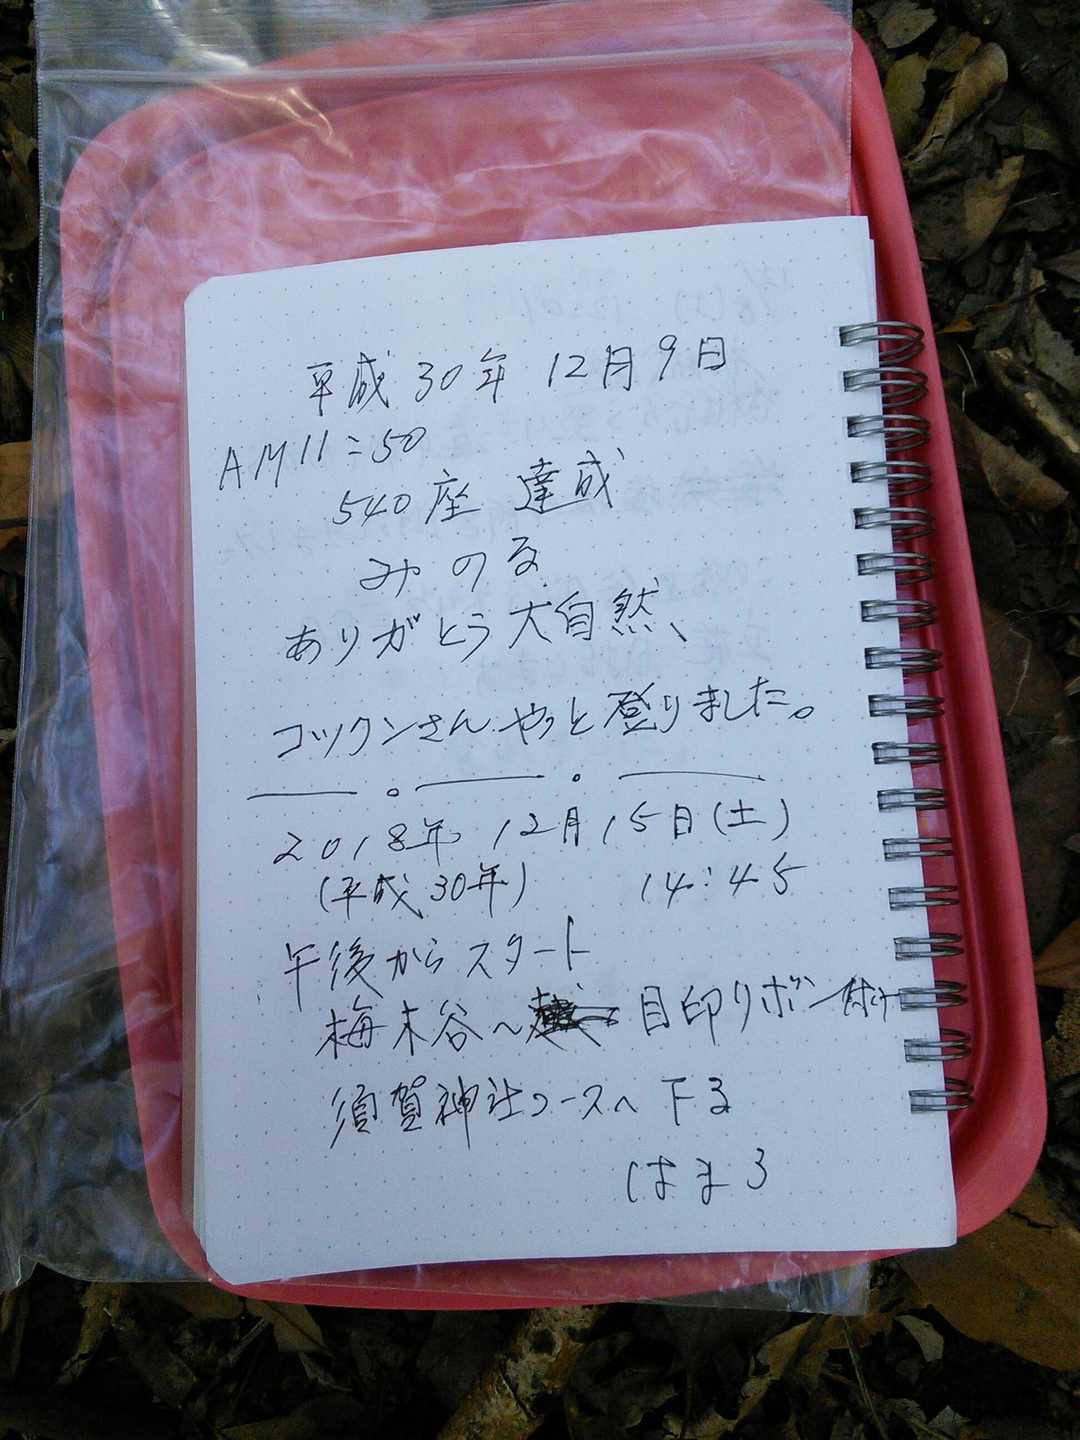 平成30年 12月9日
AM11:50
540座 達成
みのる
ありがとう大自然、
コックンさんやっと登りました。
2018年 12月15日(土)
(平成30年) 14:45
午後からスタート
梅木谷〜 目印リボン付け
須賀神社コースへ下る
はまる